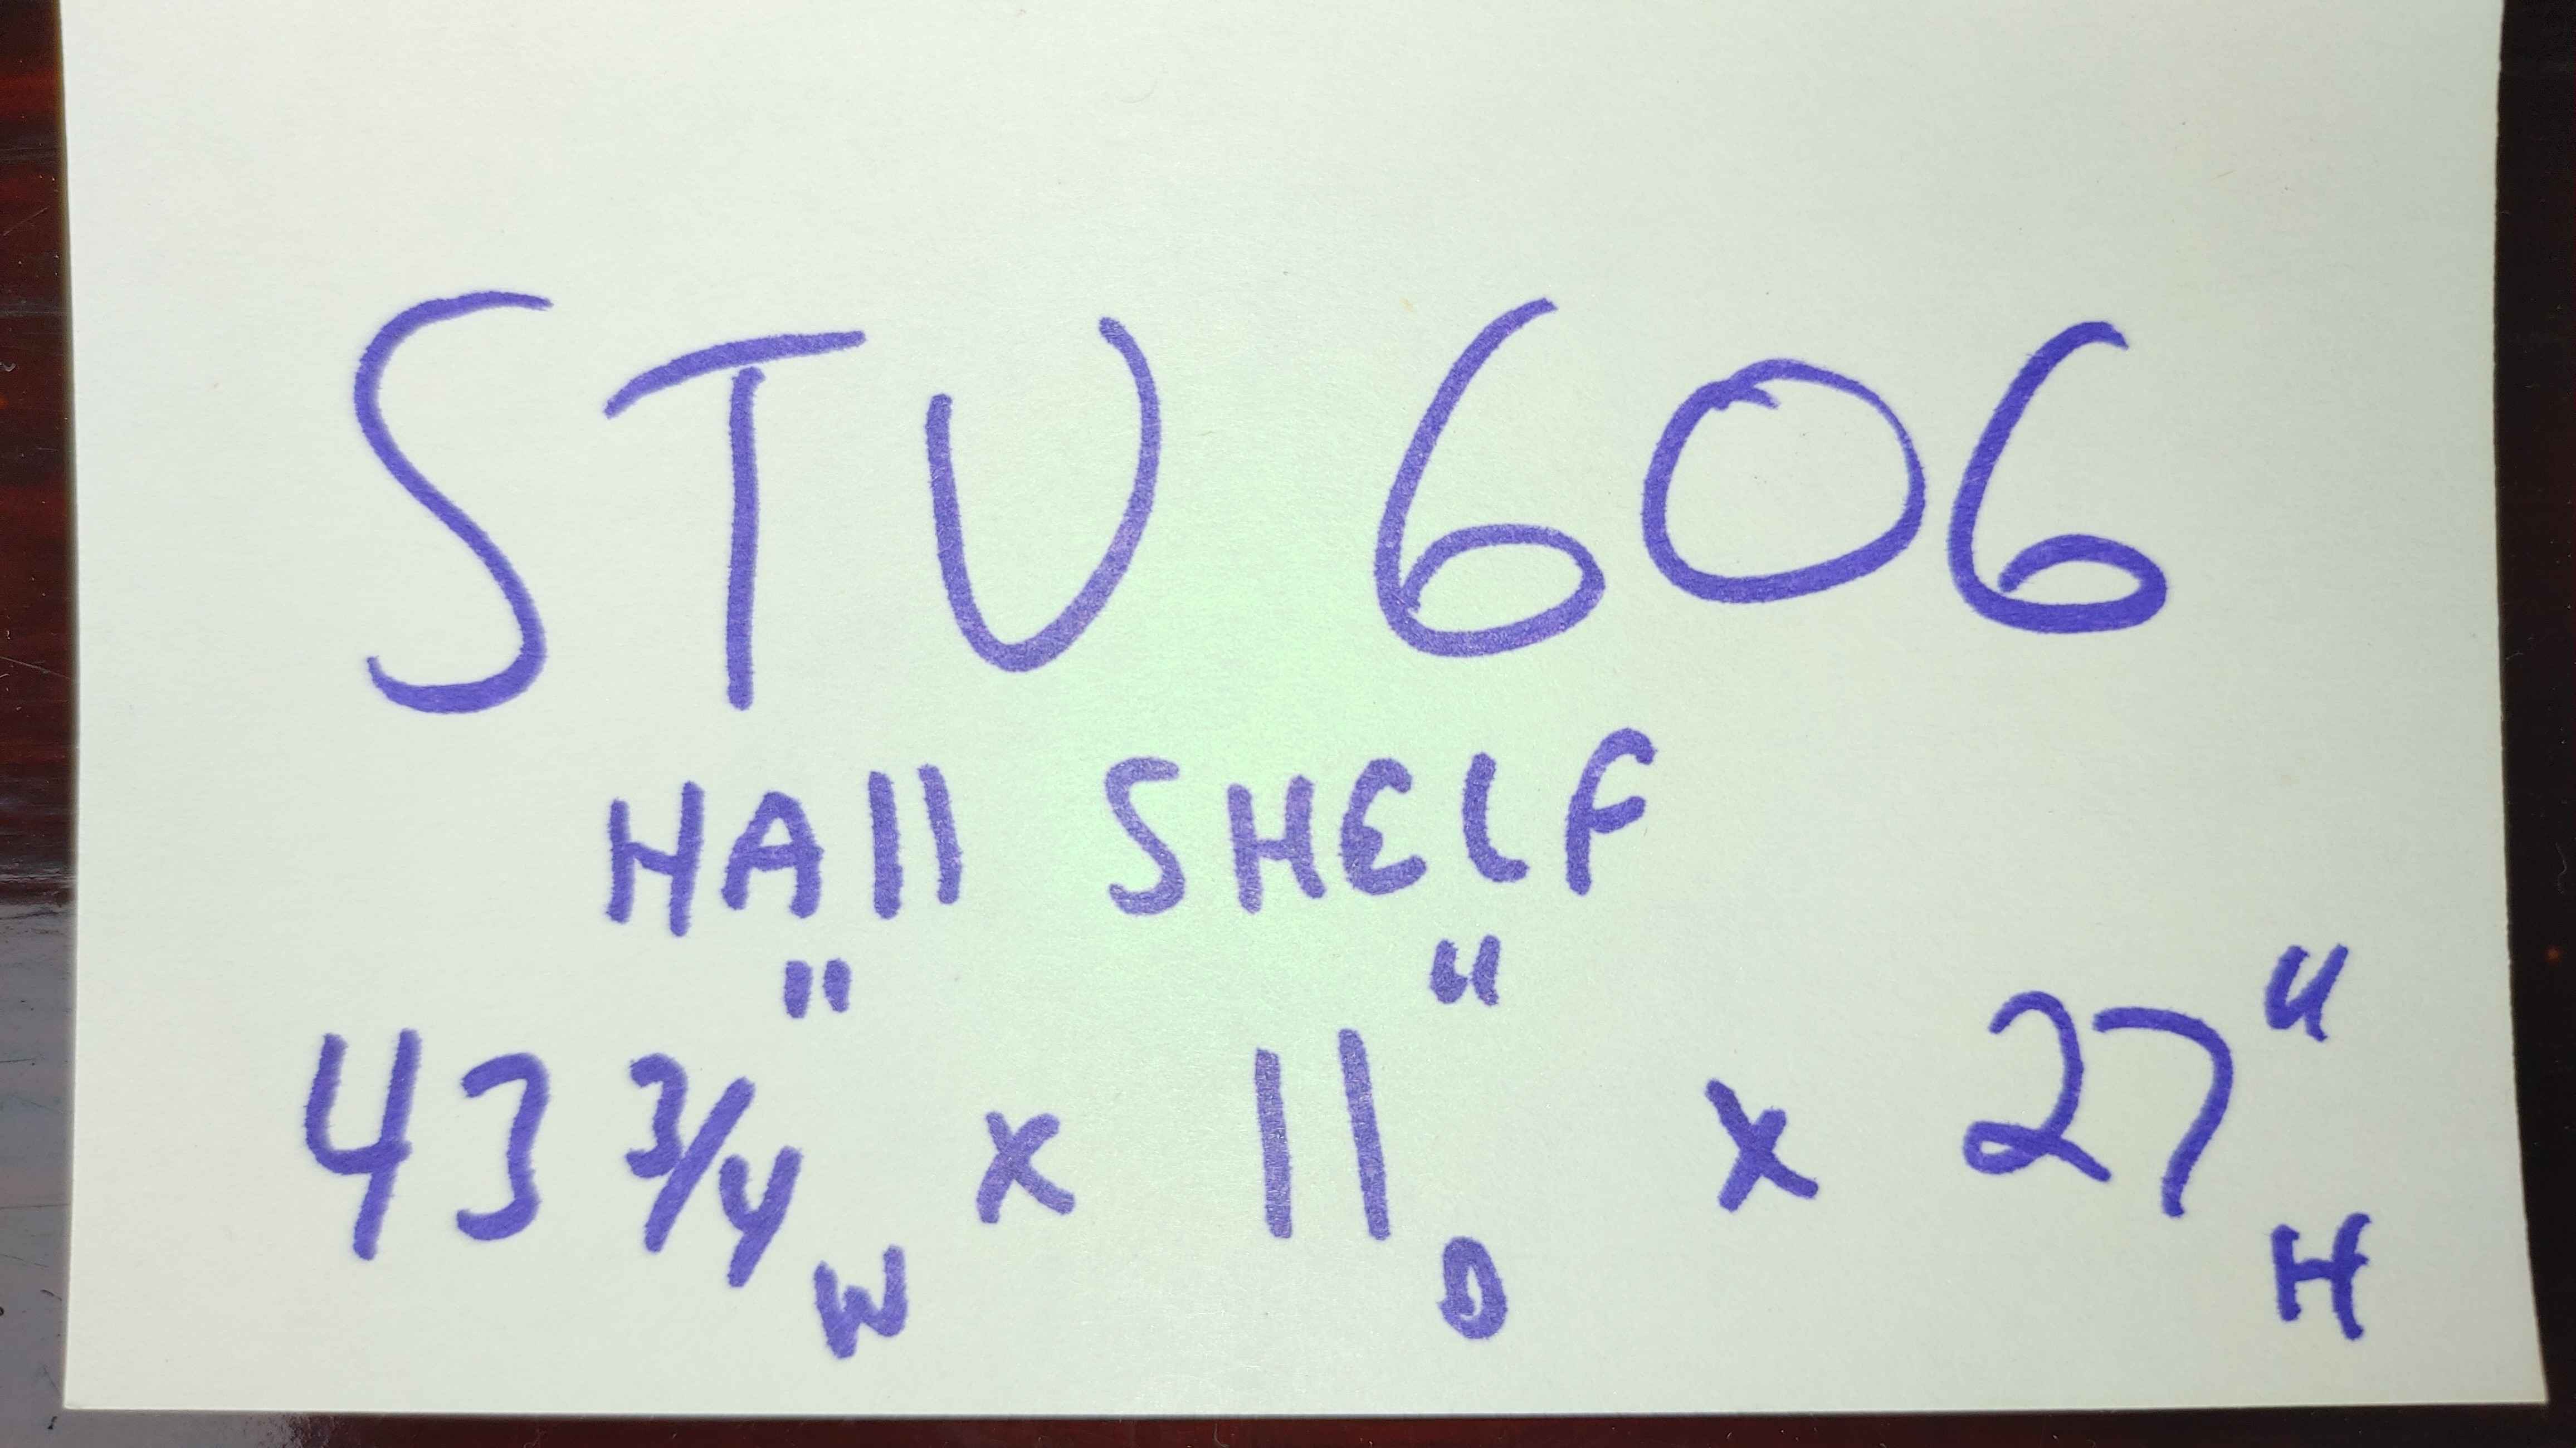 STU 606
HAll SHELF
43 3/4" W x 11" D x 27" H